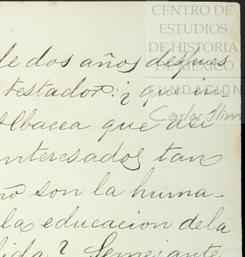 CENTRO DE
ESTUDIOS
DE HISTORIA
DE MÉXICO
FUNDACIÓN
Carlos Slim
de dos años despues
testador: ¿que in-
Albacea que asi
interesados tan
son la huma-
la educacion dela
? Semejante